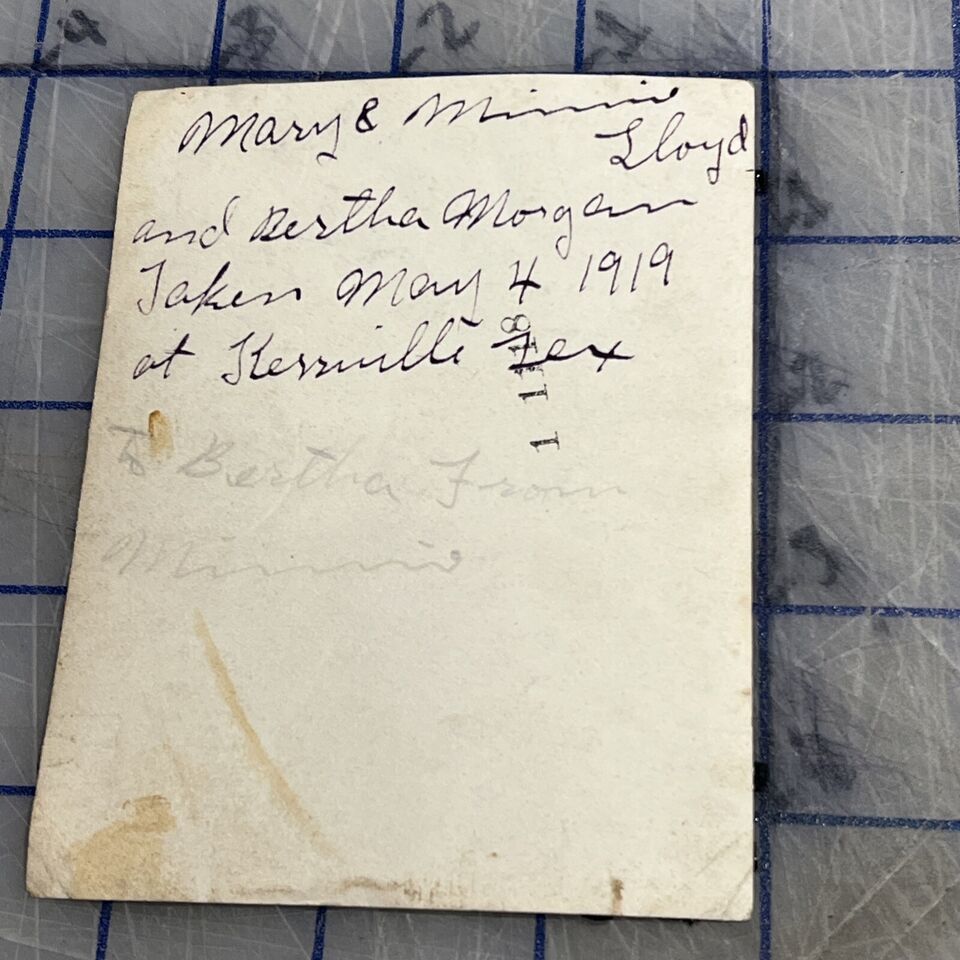 Mary & Minnie
Lloyd
and Bertha Morgan
Taken May 4 1919
at Kerrville Tex
1 1118
To Bertha From
Minnie